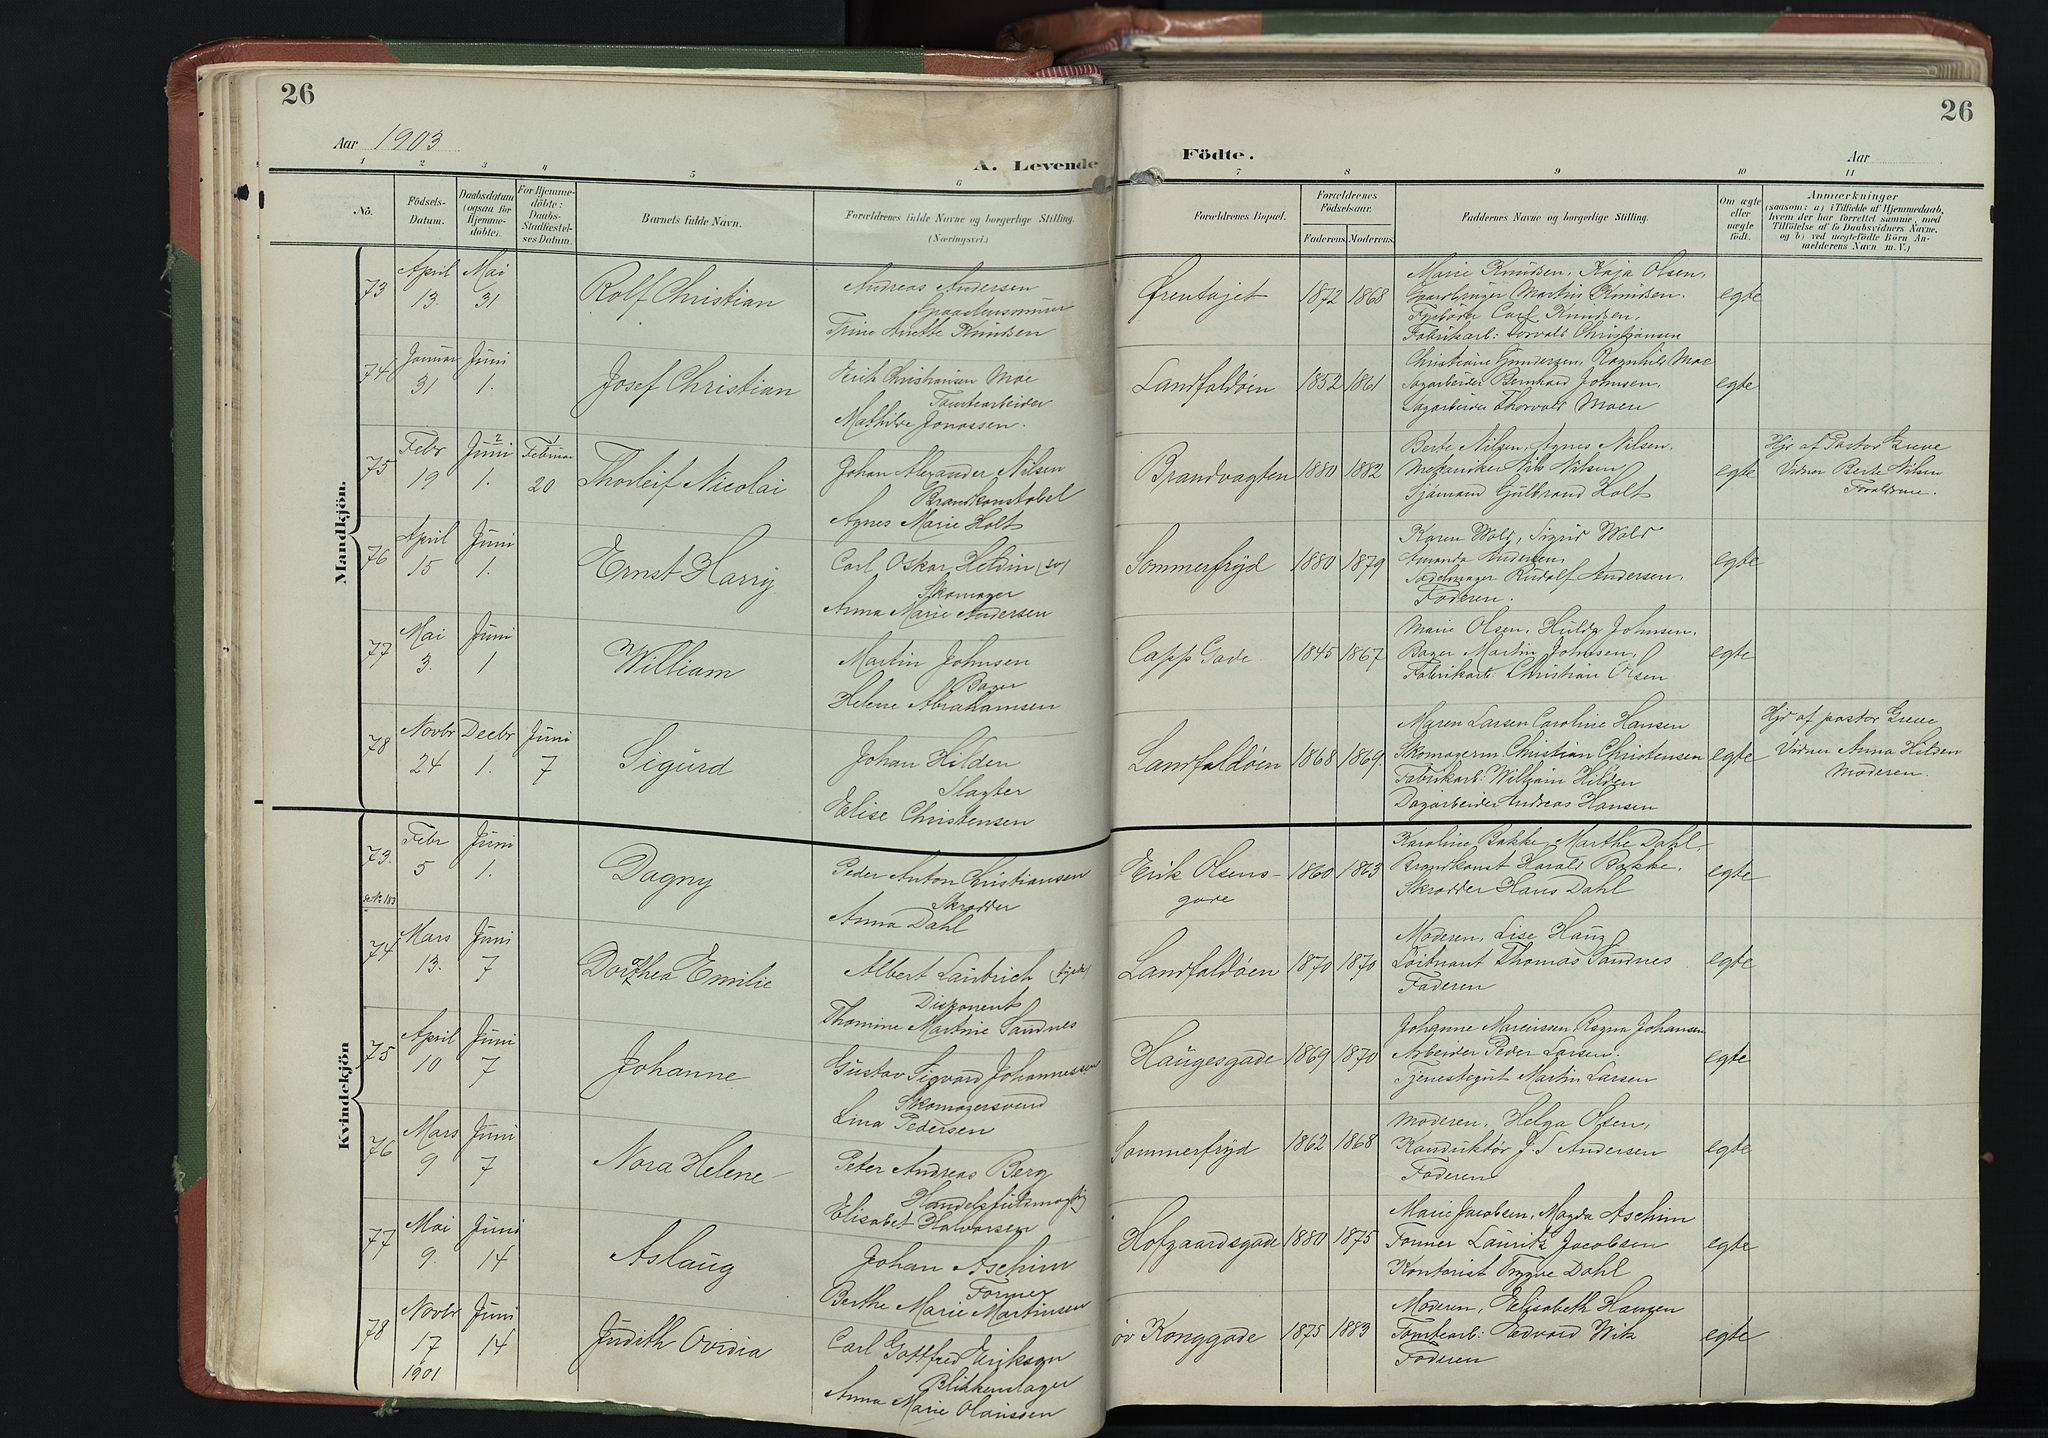 26
26
Aar 1903
A. Levende
Födte.
Aar
1 2 3 4 5 6 7 8 9 10 11
No.
Födsels-
Datum.
Daabsdatum
(ogsaa for
Hjemme-
döbte).
For Hjemme-
döbte:
Daabs-
Stadfæstel-
ses Datum.
Barnets fulde Navn.
Forældrenes fulde Navne og borgerlige Stilling.
(Næringsvei.)
Forældrenes Bopæl.
Forældrenes
Födselsaar.
Faderens. Moderens.
Faddernes Navne og borgerlige Stilling.
Om ægte
eller
uægte
født.
Anmærkninger
(saasom: a) i Tilfælde af Hjemmedaab,
hvem der har forrettet samme, med
Tilföielse af to Daabsvidners Navne,
og b) ved uægtefödte Börn An-
melderens Navn m. V.)
Mandkjön.
73
April
13.
Mai
31
Rolf Christian
Andreas Andersen
Trine Anette Knudsen
Örentojet
1872 1868
Marie Knudsen, Kaja Olsen,
Gaardbruger Martin Knudsen.
Carl Knudsen,
Fabrikarb: Torvald Christiansen
egte
74
Januar
31
Juni
1.
Josef Christian
Erik Christiansen Moe
Tomtearbeider
Mathilde Jonassen.
Landfaldöen
1852 1861
Christiane Gundersen, Ragnhild Moe
Sagarbeider Bernhard Johnsen.
Sagarbeider Thorvald Moen
egte
75
Febr
19
Juni 2
1.
1
Februar
20
Thorleif Nicolai
Johan Alexander Nilsen
Brandkonstabel
Agnes Marie Holt
Brandvagten
1880 1882
Berte Nilsen, Agnes Nilsen.
Mekaniker Nils Nilsen
Sjömand Gulbrand Holt
egte
Hjd af Pastor Greve
Vidner Berte Nilsen
Foraldrene.
76
April
15
Juni
1.
Ernst Harry
Carl Oskar Heldin (sv)
Skomager
Anna Marie Andersen
Sommerfryd
1880 1879
Karen Wold, Sigrid Wold
Amanda Andersen,
Sadelmager Rudolf Andersen,
Faderen.
egte
77
Mai
3.
Juni
1
William
Martin Johnsen
Bager
Helene Abrahamsen
Capps Gade.
1845 1867
Marie Olsen, Hulda Johnsen.
Bager Martin Johnsen,
Fabrikarb. Christian Olsen
egte
78
Novbr
24
Decbr
1.
Juni
7
Sigurd
Johan Hilden
Slagter
Elise Christensen
Landfaldöen
1868 1869.
Maren Larsen Caroline Hansen
Skomagerm Christian Christensen
Fabrikarb: William Hilden
Dagarbeider Andreas Hansen
egte
Hjd af pastor Greve
Vidner Anna Hilden
Moderen.
Kvindekjön
73.
se No 183
Febr
5
Juni
1.
Dagny
Peder Anton Christiansen
Skrædder
Anna Dahl
Erik Olsens-
gade
1860 1863
Karoline Bakke, Marthe Dahl,
Brandkonst Harald Bakke.
Skrædder Hans Dahl
egte
74
Mars
13.
Juni
7
Dorothea Emilie
Albert Laubrich (tysk)
Disponent
Thomine Martine Sandnes
Landfaldöen
1870 1870
Moderen, Lise Haug
Löitnant Thomas Sandnes
Faderen
egte
75
April
10
Juni
7
Johanne
Gustav Sigvard Johannessen
Skomagersvend
Lina Pedersen
Haugesgade
1869 1870
Johanne Marcussen Ragna Johansen
Arbeider Peder Larsen.
Tjenestegut Martin Larsen
egte
76
Mars
9
Juni
7
Nora Helene
Peter Andreas Berg
Handelsfuldmægtig
Elisabet Halvorsen
Sommerfryd
1862 1868
Moderen, Helga Olsen,
Konduktör J. S Andersen
Faderen
egte
77
Mai
9.
Juni
14
Aslaug
Johan Aschim
Former
Berthe Marie Martinsen
Hofgaardsgade
1880 1875
Marie Jacobsen, Magda Aschim
Former Lauritz Jacobsen
Kontorist Trygve Dahl
egte
78
Novbr
17
1901
Juni
14
Judith Ovidia
Carl Gottfred Eriksen
Blikkenslager
Anna Marie Olaussen
öv Konggade
1875 1883
Moderen, Elisabeth Hansen
Tomtearb: Edvard Wik
Faderen
egte